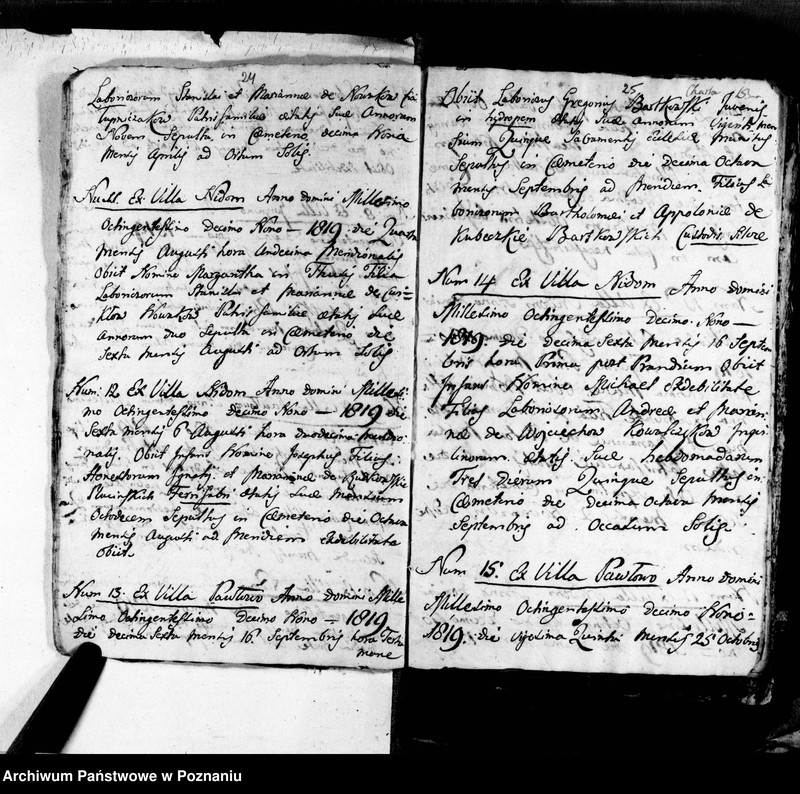 24
Laboriosorum Stanislai et Mariannae de
Patrisfamilias aetatis suae Annorum
Novem Sepulta in Caemeterio decima Nona
Mensis Aprilis ad Ortum Solis.
Num 11. Ex Villa Nidom Anno Domini Millesimo
Octingentesimo Decimo Nono — 1819 die Quarta
Mensis Augusti hora Undecima Meridionalis
Obiit Nomine Margaritha in Filia
Laboriosorum Stanislai et Mariannae de
Patris familiae aetatis suae
Annorum duo Sepulta in Caemeterio die
Sexta Mensis Augusti ad Ortum Solis
Num: 12 Ex Villa Nidom Anno Domini Millesi-
mo Octingentesimo decimo Nono — 1819 die
Sexta Mensis 6 Augusti hora duodecima meridio-
nalis. Obiit Infans Nomine Josephus Filius
Honestorum Ignatij et Mariannae de
aetatis suae Mensium
Octodecem Sepultus in Caemeterio die Octava
Mensis Augusti ad Meridiem exdebilitate
Obiit.
Num 13. Ex Villa Pawłowo Anno Domini Mille
simo Octingentesimo Decimo Nono — 1819
die decima Sexta Mensis 16 Septembris hora
mane
25
Obiit Laboriosus Gregorius Bartkowski Juvenis
in hydropem aetatis suae Annorum Viginti men
sium Quinque Sacramentis Ecclesiae munitus
Sepultus in Caemeterio die Decima Octava
mensis Septembris ad Meridiem Filius La
boriosorum Bartholomei et Appoloniae de
Kubeczkie Bartkowskich Custodis Silvae
Num 14 Ex Villa Nidom Anno domini
Millesimo Octingentesimo Decimo Nono —
1819. die decima Sexta Mensis 16 Septem
bris hora Prima post Prandium Obiit
Infans Nomine Michael exdebilitate
Filius Laboriosorum Andreae et Marian
nae de Woyciechow Kowalczykow Inqui
linorum. aetatis suae hebdomadarum
Tres dierum Quinque Sepultus in
Caemeterio die Decima Octava Mensis
Septembris ad Occasum Solis
Num 15. Ex Villa Pawłowo Anno Domini
Millesimo Octingentesimo decimo Nono =
1819. die Vigesima Quinta Mensis 25 Octobris
Archiwum Państwowe w Poznaniu